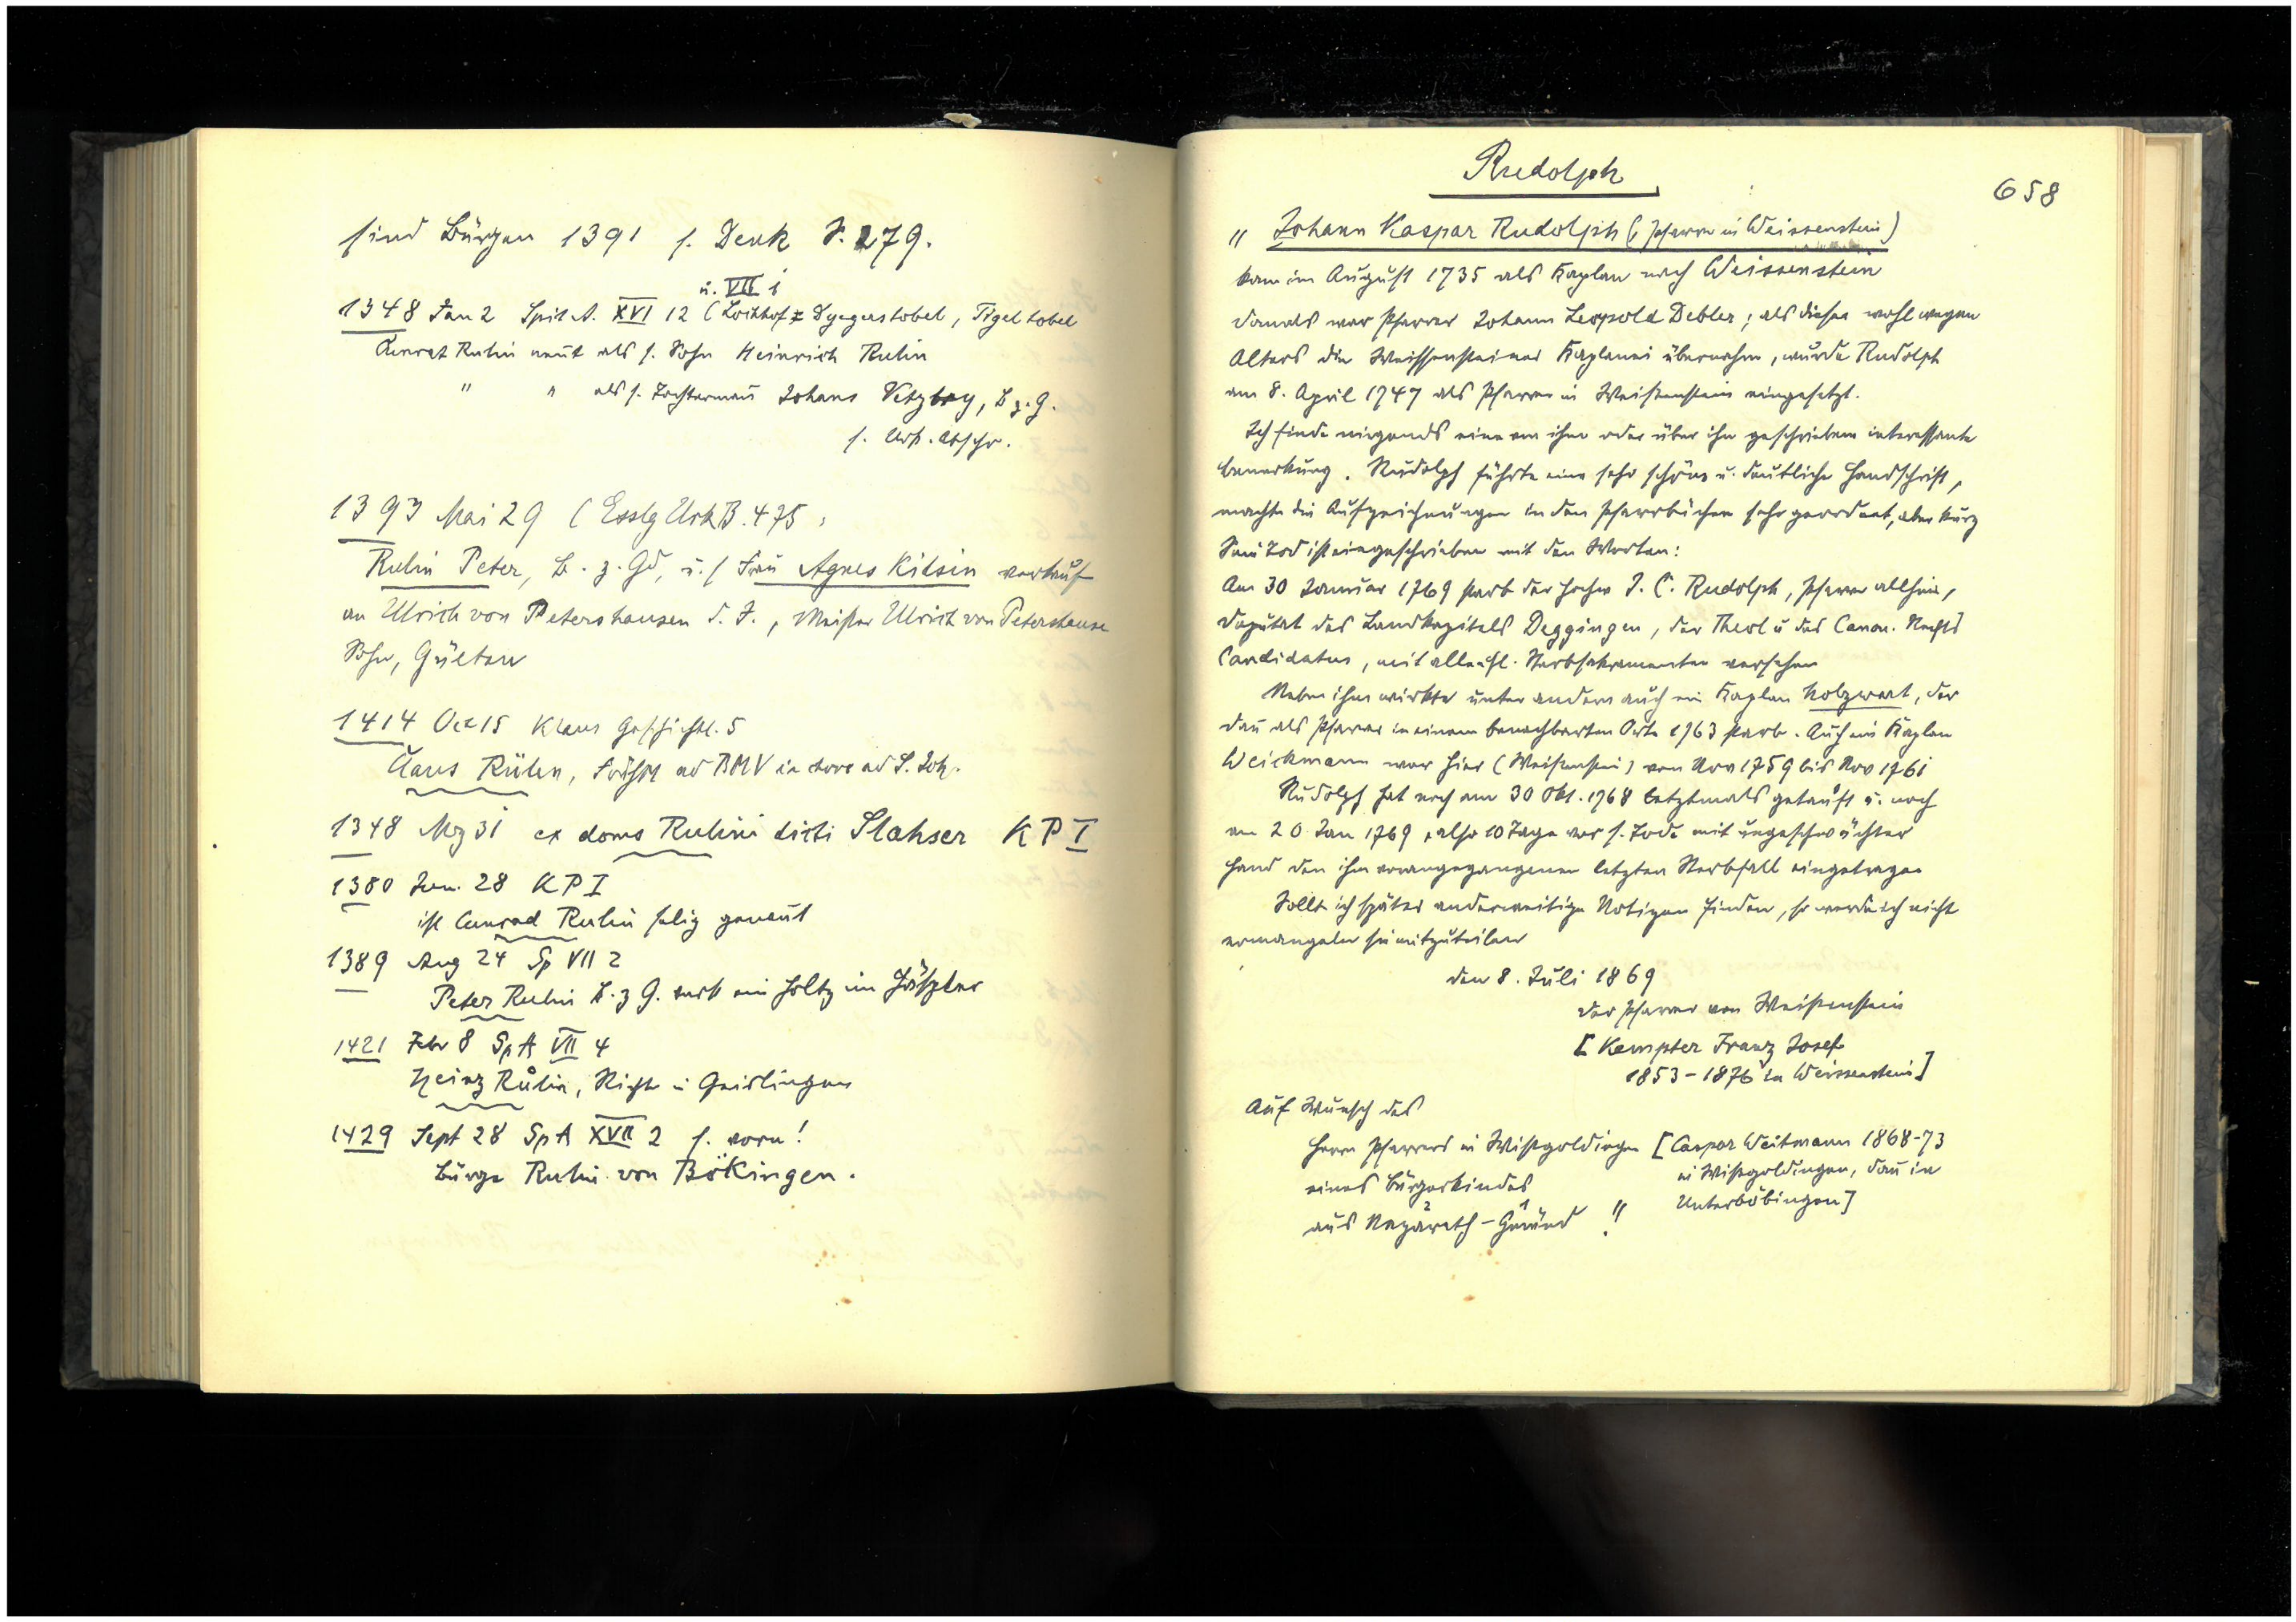 sind Bürgen 1391 s. Denk S. 279.
u. VII 1
1348 Jan 2 Spit A. XVI 12 (Loikhof Dyegerstobel, Tigeltobel
Konrat Rulin nent als s. Sohn Heinrich Rulin
" " als s. Tochterman Johans Vetzbry, B z. G.
s. Urk. Abschr.
1393 Mai 29 (Esslg Urk B. 475 :
Rulin Peter, B. z. Gd, u. s Frau Agnes Kitsin verkauf
an Ulrich von Petershausen d. J., Meister Ulrich von Petershause
Sohn, Gülten
1414 Oct 15 Klaus Geschichtl. 5
Claus Rülin, FrühM ad BMV in choro ad S. Joh.
1348 Mrz 31 ex domo Rulini dicti Slahser KP I
1380 Jun. 28 KP I
ist Cunrad Rulin selig genent
1389 Aug 24 Sp VII 2
Peter Rulin B. z G. verk ein Holtz im
1421 Febr 8 Sp A VII 4
Heinz Růlin, Richter in Geislingen
1429 Sept 28 Sp A XVII 2 s. vorn!
Bürge Rulin von Bökingen.
Rudolph
658
" Johann Kaspar Rudolph (Pfarrer in Weissenstein)
kam im August 1735 als Kaplan nach Weissenstein
damals war Pfarrer Johann Leopold Debler; als dieser wohl wegen
Alters die Weissensteiner Kaplanei übernahm, wurde Rudolph
am 8. April 1747 als Pfarrer in Weißenstein eingesetzt.
Ich finde nirgends eine von ihm oder über ihn geschriebene interessante
Bemerkung. Rudolph führte eine sehr schöne u. deutliche Handschrift,
machte die Aufzeichnungen in den Pfarrbüchern sehr geordnet, aber kurz
Sein Tod ist eingeschrieben mit den Worten:
Am 30 Januar 1769 starb der Hochw J. C. Rudolph, Pfarrer allhier,
Deputat des Landkapitels Deggingen, der Theol u des Canon. Rechts
Candidatus, mit allen hl. Sterbsakramenten versehen
Neben ihm wirkte unter andern auch ein Kaplan Holzwart, der
dan als Pfarrer in einem benachbarten Orte 1763 starb. Auch ein Kaplan
Weickmann war hier (Weißenstein) vom Nov 1759 bis Nov 1761
Rudolph hat noch am 30 Okt. 1768 letztmals getauft u. noch
am 20 Jan 1769, also 10 Tage vor s. Tode mit ungeschwächter
Hand den ihm vorangegangenen letzten Sterbfall eingetragen
Sollte ich später anderweitige Notizen finden, so werde ich nicht
ermangeln sie mitzuteilen
den 8. Juli 1869
der Pfarrer von Weißenstein
[Kempter Franz Josef
1853-1876 in Weissenstein]
Auf Wunsch des
Herrn Pfarrers in Wißgoldingen [Caspar Weitmann 1868-73
eines Bürgerkindes in Wißgoldingen, dan in
aus Nazareth - Gmünd !" Unterböbingen]
2 1